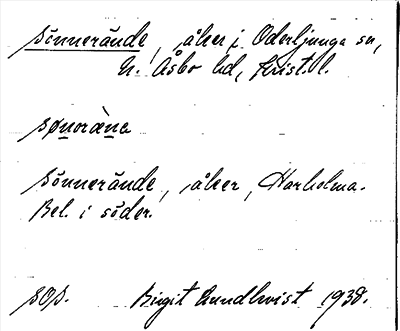 Sönnerände, åker i Oderljunga sn,
N. Åsbo hd, Krist. l.
sønoræ̀na
Sönnerände, åker, Harholma.
Bel. i söder.
sOs. Birgit Lundkvist 1938.